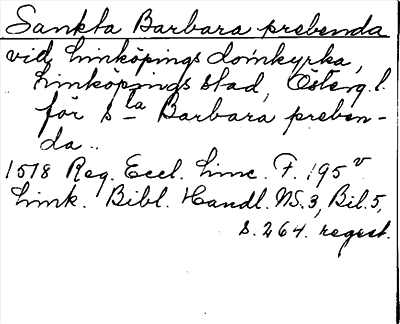 Sankta Barbara prebenda
vid Linköpings domkyrka,
Linköpings stad, Österg.l.
för s:ta Barbara preben-
da..
1518 Reg. Eccl. Linc. F. 195 v
Link. Bibl. Handl. NS.3, Bil.5,
s. 264. regest.